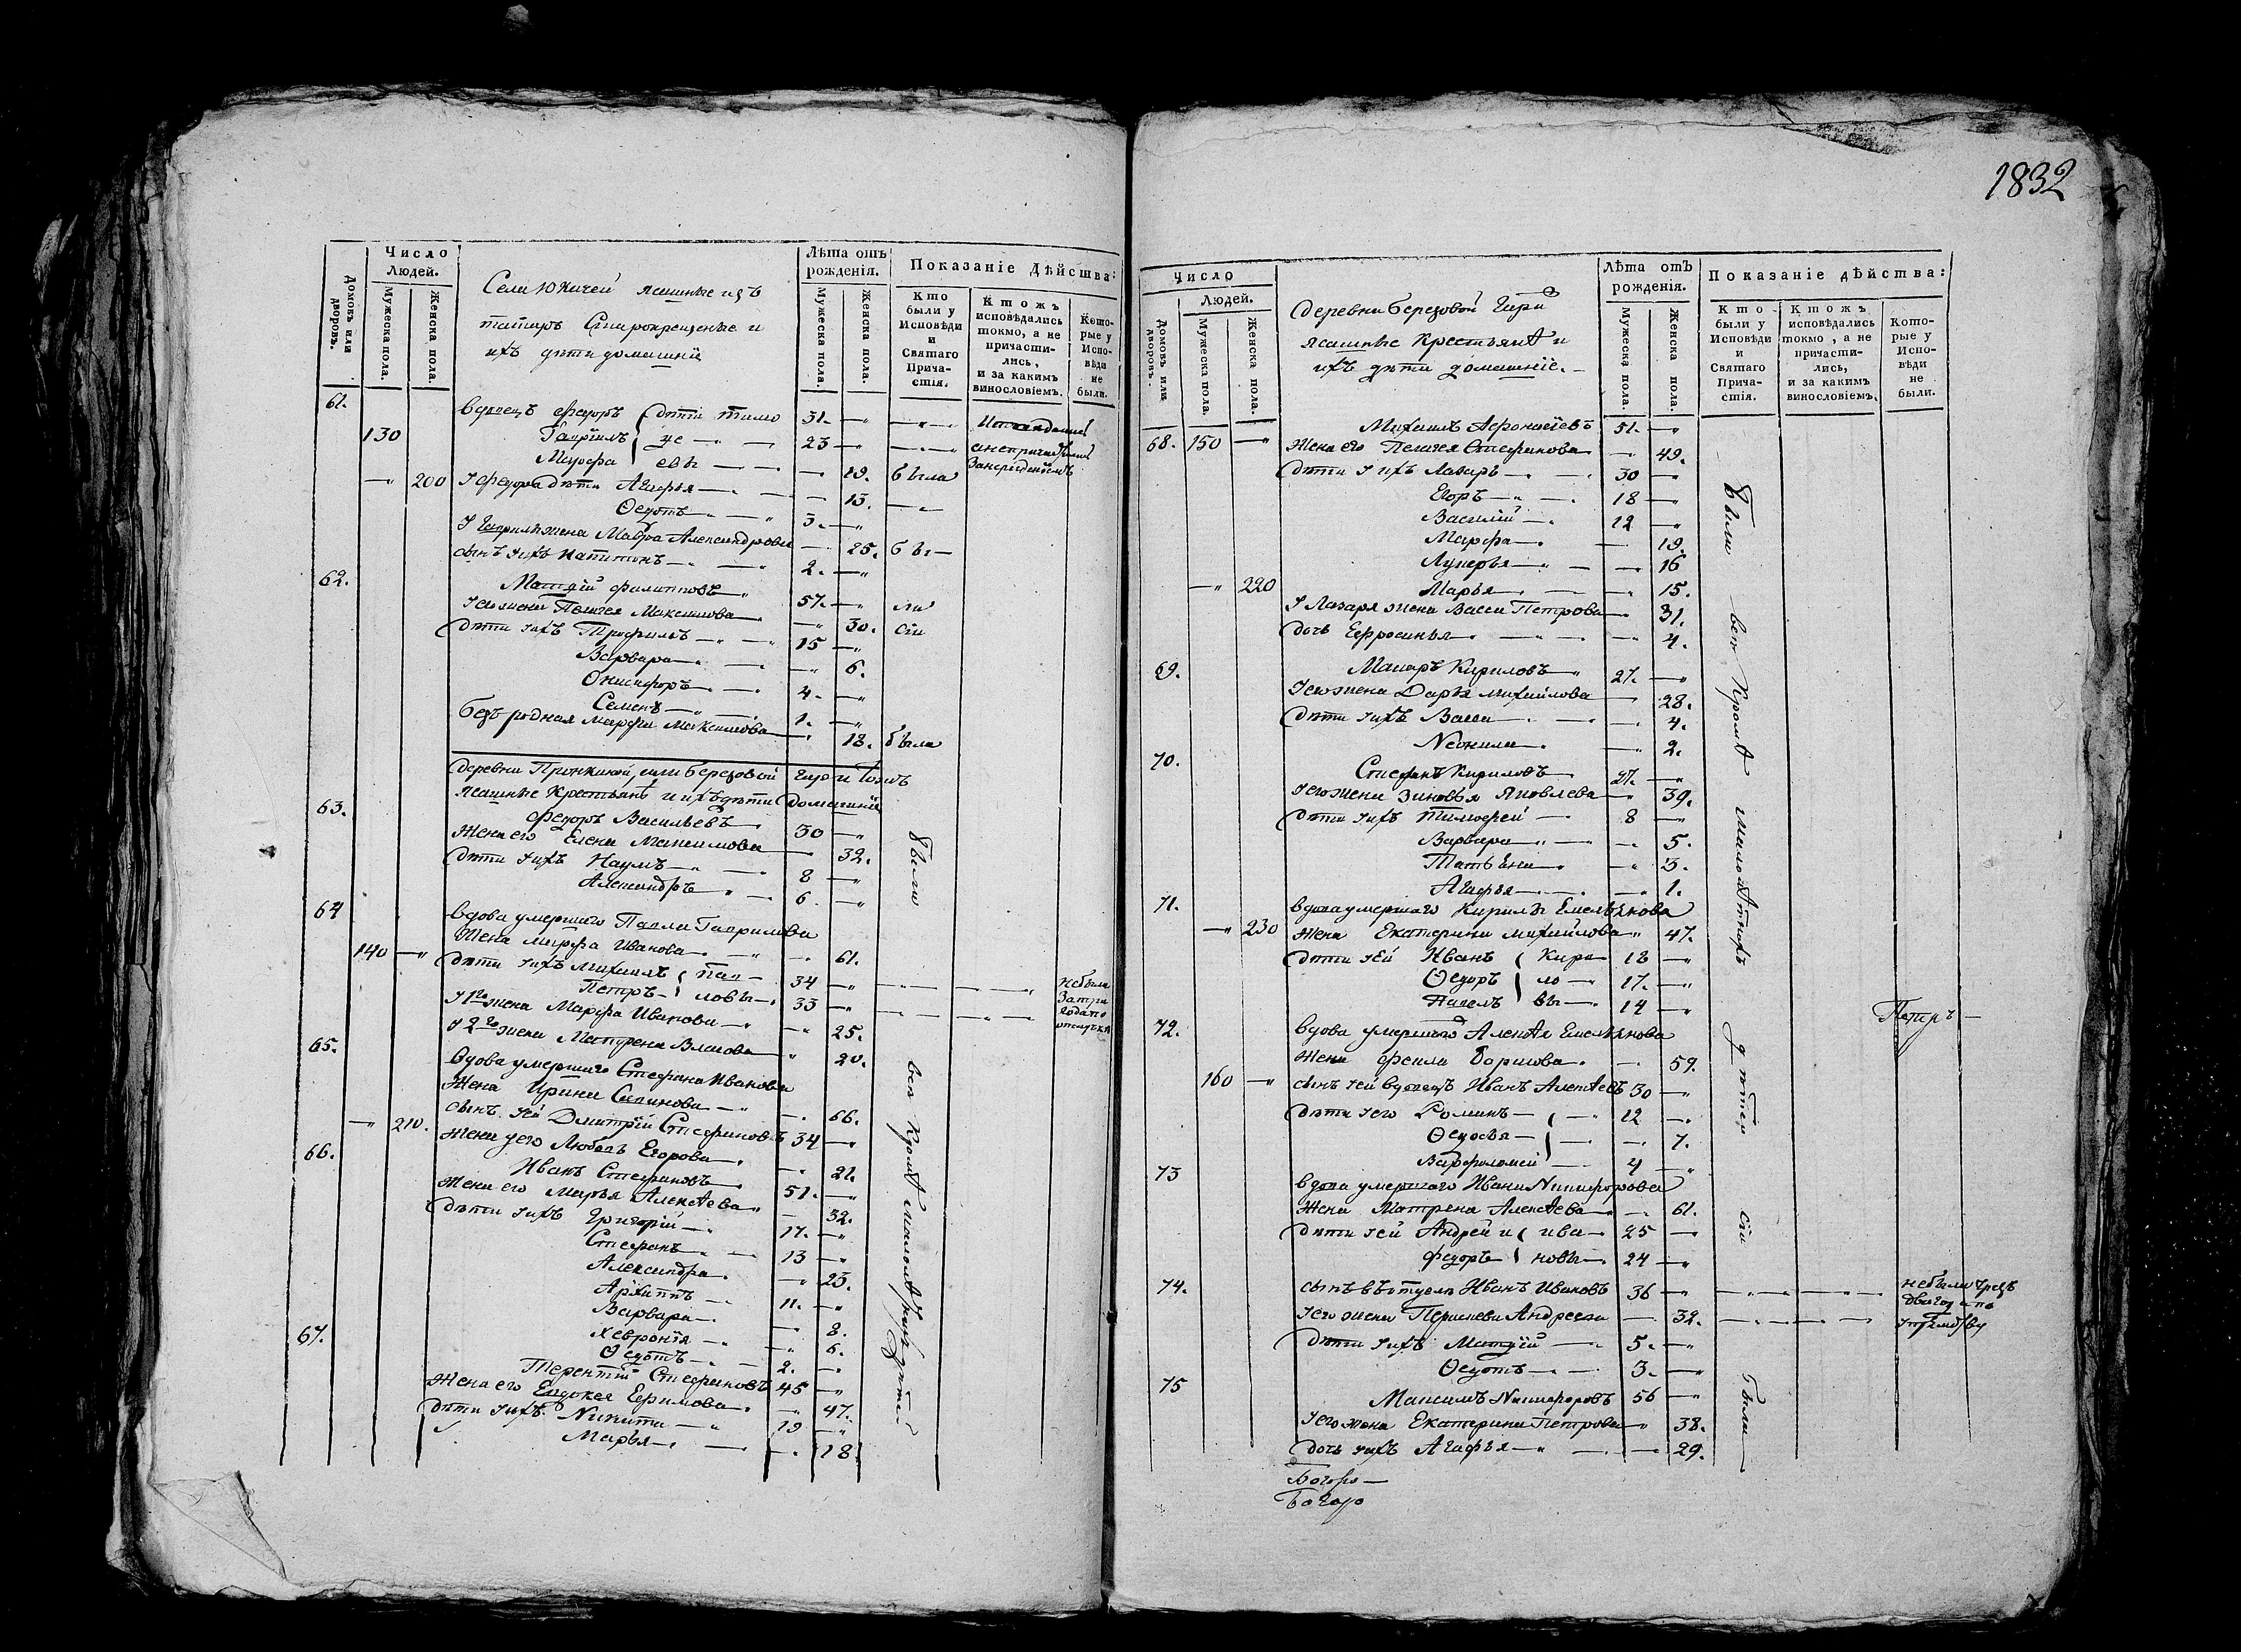 Домовъ или дворовъ.
Число Людей.
Мужеска пола.
Женска пола.
Села Юкачей ясашные изъ
татаръ Старокрещеные и
ихъ дѣти домашнiи
Лѣта отъ рожденiя.
Мужеска пола.
Женска пола.
Показанiе Дѣйства:
Кто были у Исповѣди и Святаго Причастiя.
Ктожъ исповѣдались токмо, а не причастились, и за какимъ винословiемъ.
Которые у Исповѣди не были.
61. вдовецъ Федоръ дѣти тимо 31.
130 Гаврiилъ фе 23
Марфа евы 19. была
200 У Федора дѣти Агафья 13.
Федотъ 3.
У Гаврилы жена Мавра Александрова 25. бы
сынъ у ихъ Капитонъ 2.
62. Матфiй Филипповъ 57. ли
У его жена Пелагея Максимова 30. сiи
дѣти у ихъ Трофимъ 15
Варвара 6.
Онисифоръ 4.
Семенъ 1.
безъродная Марфа Максимова 18. была
деревни Пронкиной, или березовой Гари тожъ
ясашные Крестьянѣ и ихъ дѣти домашнiи
63. Федоръ Васильевъ 30
Жена его Елена Максимова 32.
дѣти у ихъ Наумъ 8
Александръ 6.
64 вдова умершаго Павла Гаврилова
Жена Марфа Иванова 61.
140 дѣти у ихъ Михаилъ Пав 34 небыли
Петръ ловы 33 за три
У 1го жена Марфа Иванова 25. года по
У 2го жена Матрена Власова 20.
65. вдова умершаго Стефана Иванова
Жена Ирина Савинова 66.
210. сынъ у ей Дмитрiй Стефановъ 34
Жена у его Любовь Егорова 21.
66. Иванъ Стефановъ 51.
Жена его Марья Алексѣева 32.
дѣти у ихъ Григорiй 17.
Стефанъ 13
Александра 23.
Архиппъ 11.
Варвара 8.
Хеврония 6.
Федотъ 2.
67. Терентiй Стефановъ 45
Жена его Евдокея Ефимова 47.
дѣти у ихъ Никита 19
Марья 18.
были всѣ кромѣ малолѣтнихъ дѣтей
1832
Домовъ или дворовъ.
Число Людей.
Мужеска пола.
Женска пола.
Деревни березовой Гари
ясашные Крестьянѣ и
ихъ дѣти домашнiе.
Лѣта отъ рожденiя.
Мужеска пола.
Женска пола.
Показанiе дѣйства:
Кто были у Исповѣди и Святаго Причастiя.
Ктожъ исповѣдались токмо, а не причастились, и за какимъ винословiемъ.
Которые у Исповѣди не были.
Михаилъ Афонасiевъ 51.
68. 150 Жена его Пелагея Стефанова 49.
дѣти у ихъ Лазарь 30
Егоръ 18
Василiй 12
Марфа 19.
Лукерья 16
220 Марья 15.
У Лазаря жена Васса Петрова 31.
дочь Ефросинья 4.
69. Макаръ Кириловъ 27.
У его жена Дарья Михайлова 28.
дѣти у ихъ Васса 4.
Неонила 2.
70. Стефанъ Кириловъ 27.
У его жена Зиновья Яковлева 39.
дѣти у ихъ Тимофей 8
Варвара 5.
Татьяна 3.
Агафья 1.
71. вдова умершаго Кирилы Емельянова
230 Жена Екатерина Михайлова 47.
дѣти у ей Иванъ Кири 18
Федоръ ло 17.
Павелъ вы 14
72. вдова умершаго Алексѣя Емельянова
Жена Фекла Борисова 59.
160 сынъ у ей вдовецъ Иванъ Алексѣевъ 30
дѣти у его Романъ 12
Федосья 7.
Варфоломей 4
73 вдова умершаго Ивана Никифорова
Жена Матрена Алексѣева 61.
дѣти у ей Андрей и ива 25
Федоръ новы 24
74. Иванъ Ивановъ 36 небыли чрезъ
У его жена Андреева 32.
дѣти у ихъ Матфiй 5.
Федотъ 3.
75 Максимъ Никифоровъ 56
У его жена Екатерина Петрова 38.
дочь у ихъ Агафья 29.
были всѣ Кромѣ малолѣтнихъ дѣтей сiи были
Петръ
Богоро
Богоро